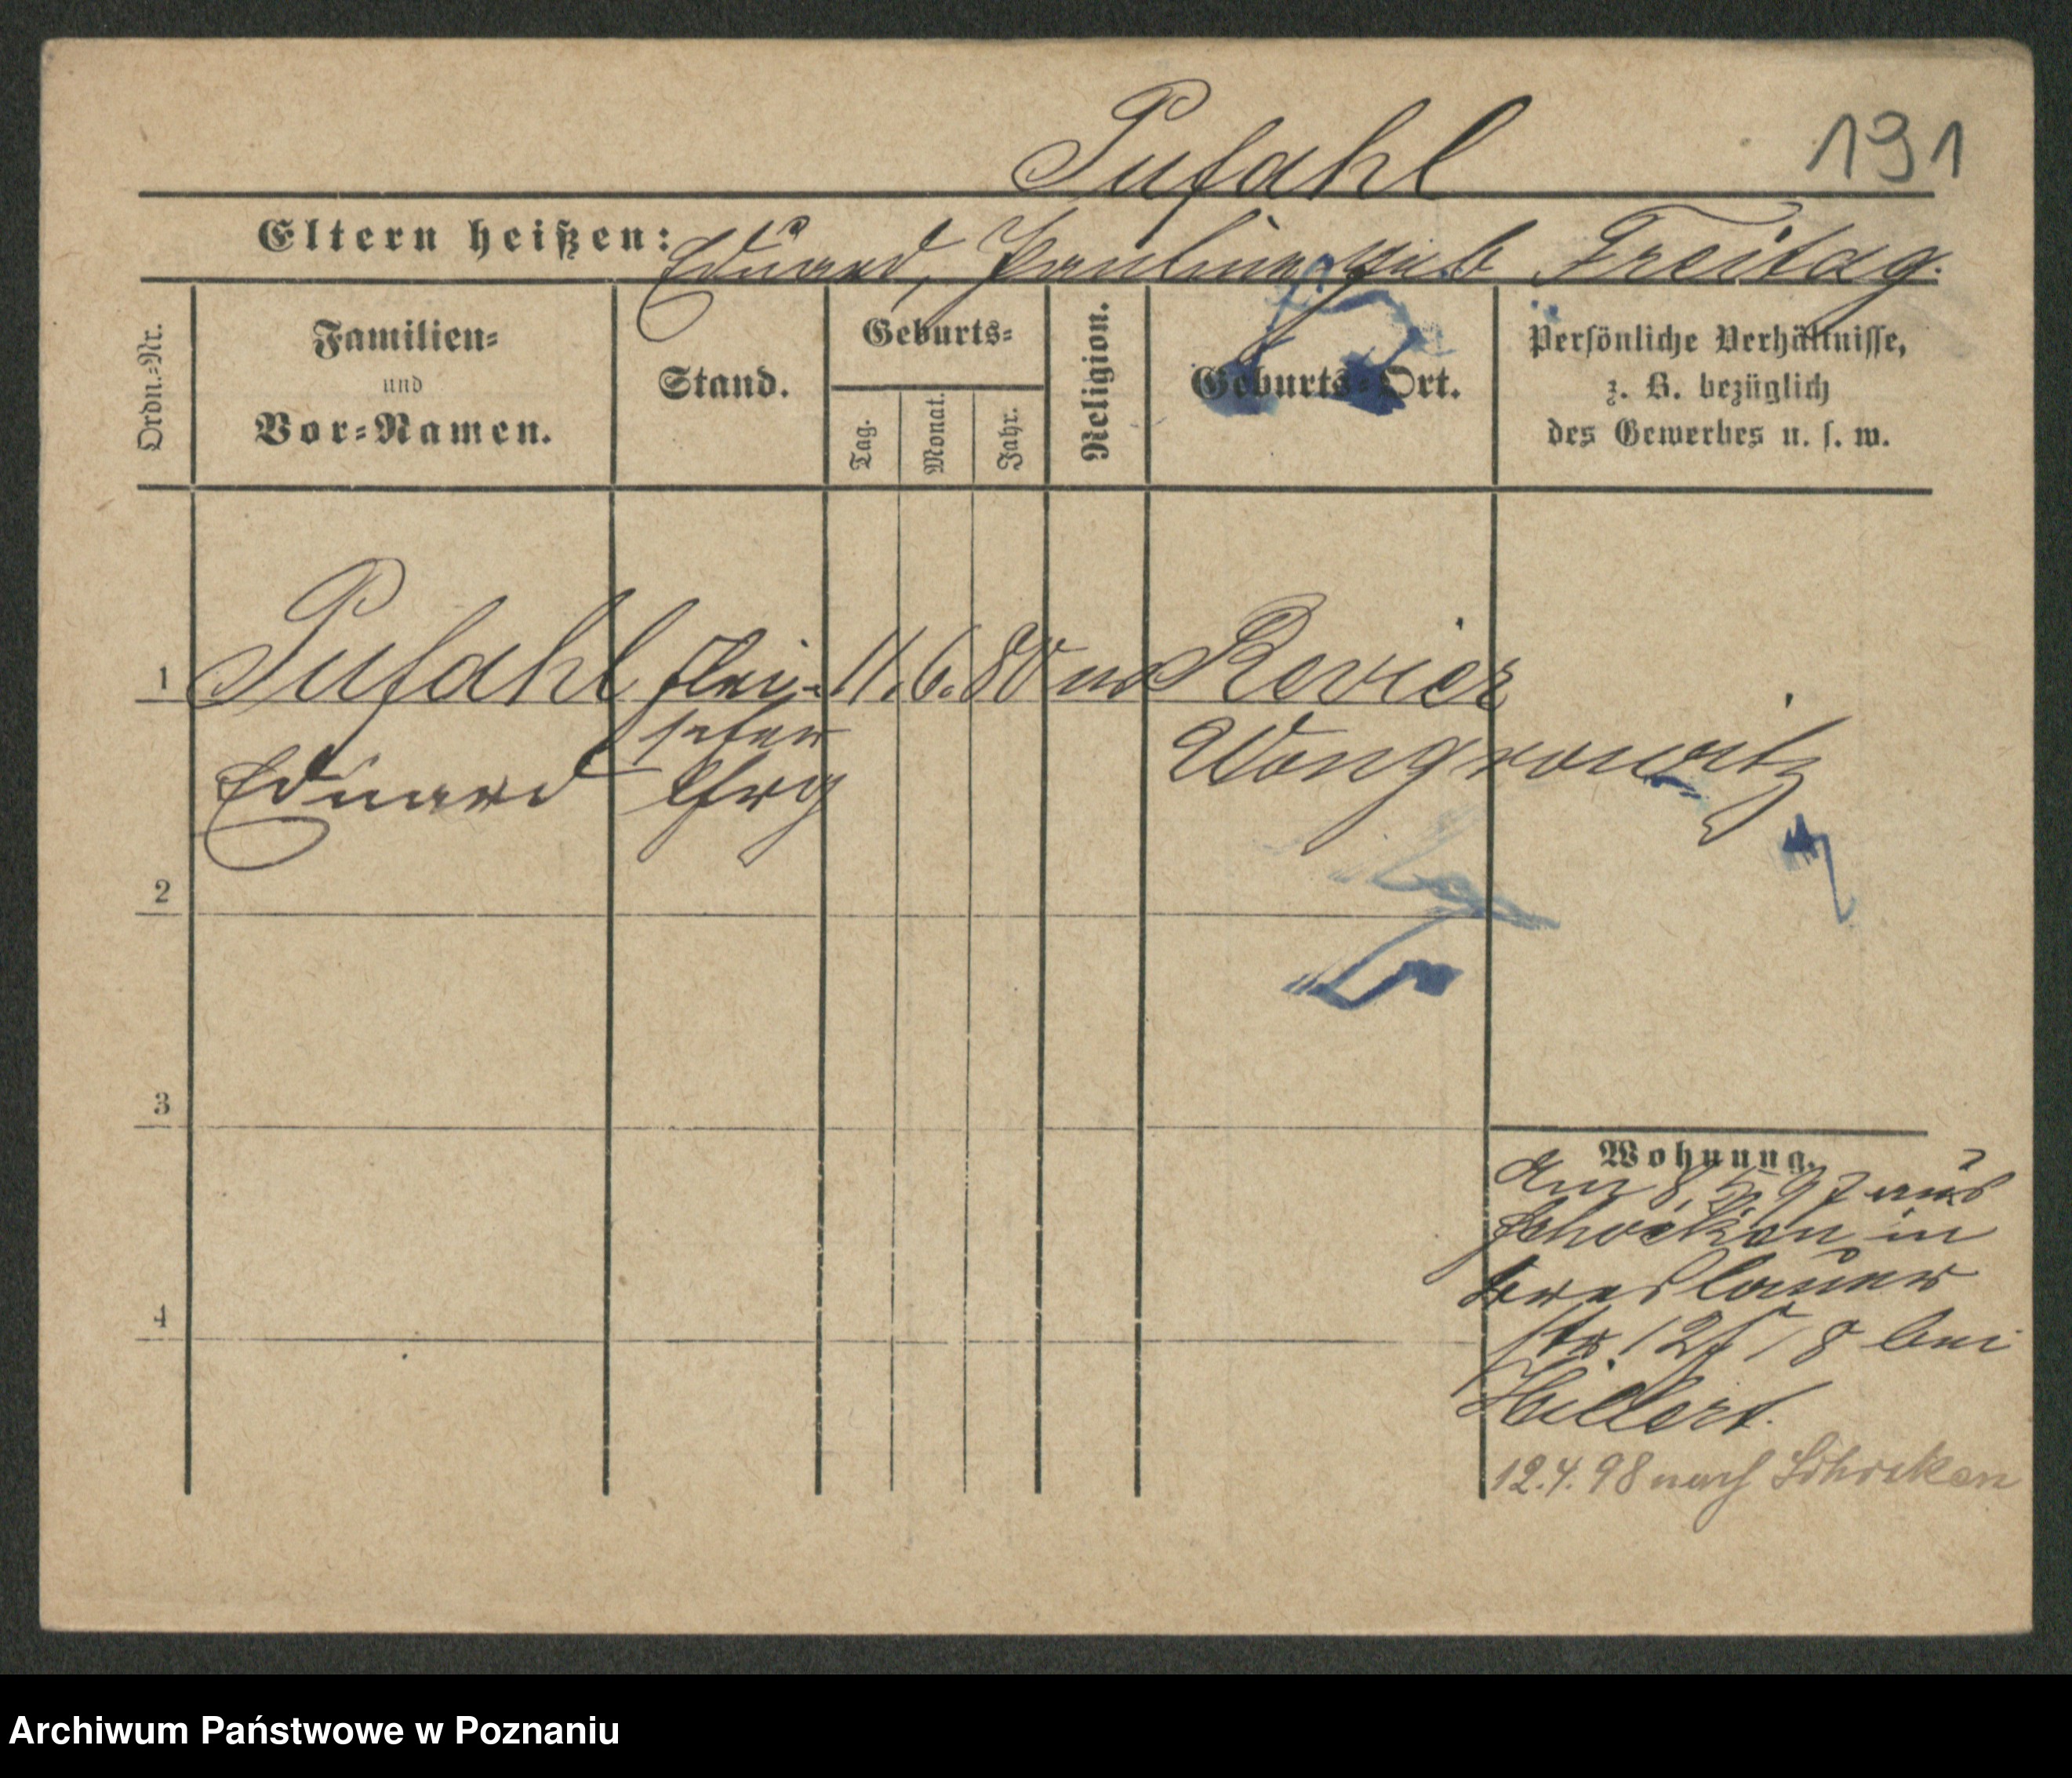 Pufahl
191
Eltern heißen: Eduard, Pauline geb Freitag.
Ordn.-Nr.
Familien-
und
Vor-Namen.
Stand.
Geburts-
Tag.
Monat.
Jahr.
Religion.
Geburts-Ort.
Persönliche Verhältnisse,
z. B. bezüglich
des Gewerbes u. s. w.
1 Pufahl Flei- 11. 6. 80 Revier
scher
Wongrowitz
Eduard lhrg
2
3
4
Wohnung.
Am 8, 5 97 aus
Schocken in
Breslauer
str. 17/18 bei
Hillert.
12.4.98 nach Schocken
Archiwum Państwowe w Poznaniu